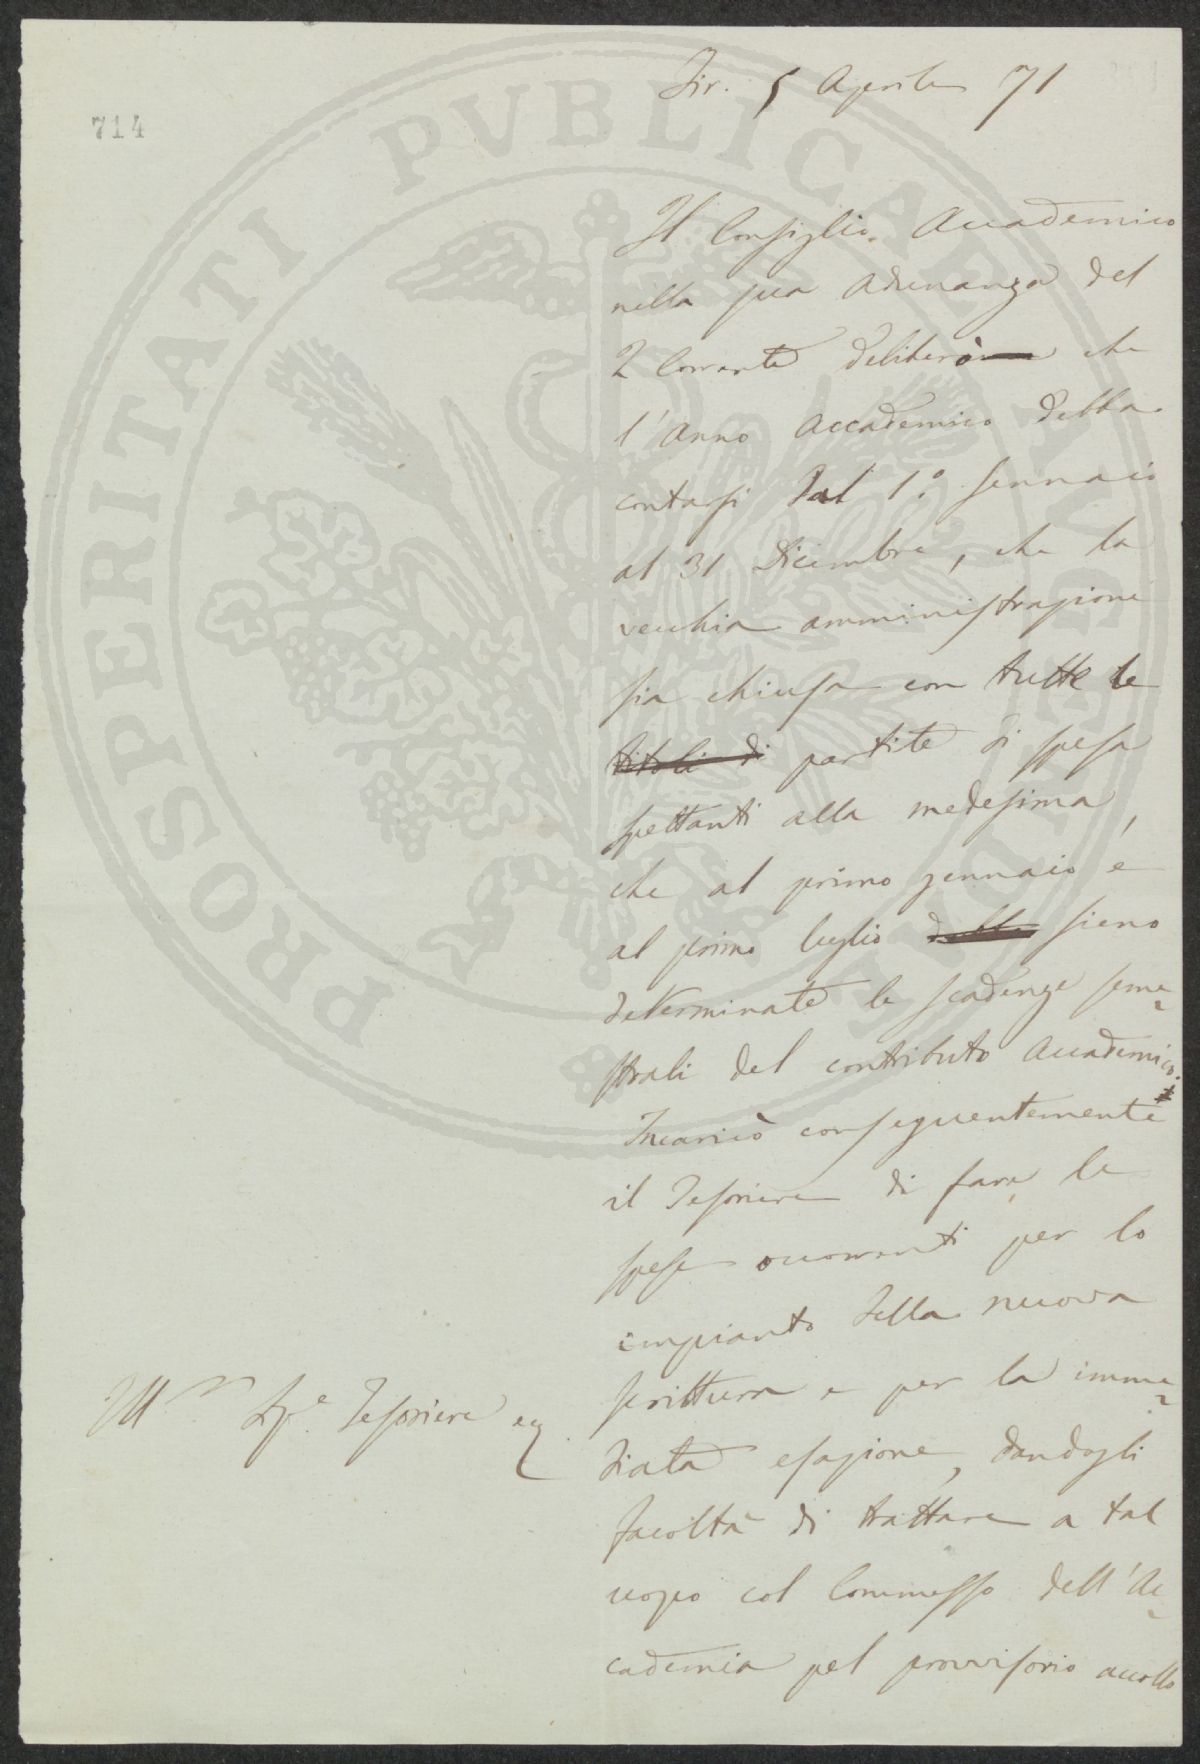 714
Fir. 5 Aprile 71
Il Consiglio Accademico
nella sua Adunanza del
2 Corrente deliberò che
l'anno Accademico debba
contarsi dal 1.° Gennaio
al 31 Dicembre, che la
vecchia amministrazione
sia chiusa con tutte le
titoli di partite di spesa
spettanti alla medesima,
che al primo gennaio e
al primo luglio debba sieno
determinate le scadenze seme
strali del contributo Accademico.
Incaricò conseguentemente
il Tesoriere di fare le
spese occorrenti per lo
impianto della nuova
scrittura e per la imme
diata esazione, dandogli
facoltà di trattare a tal
uopo col Commesso dell'Ac
cademia pel provvisorio accollo
Ill.mo Sig.e Tesoriere
PROSPERITATI PVBLICAE AVGENDAE